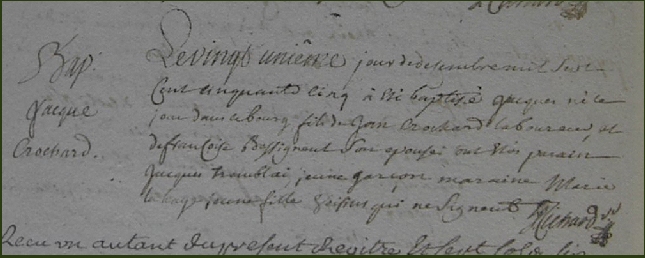 Bap.
Jacque
Crochard.
Le vingt unième jour de decembre mil sept
cent cinquante cinq à été baptisé Jacques né le
jour dans le bourg, fils de Jean Crochard laboureur, et
de francoise Bassigneut son epouse, ont étés parain
Jacques Tramblai, jeune garçon, maraine Marie
jeune fille qui ne signent Richard
Recu un autant du present Regitre Et sept sols six